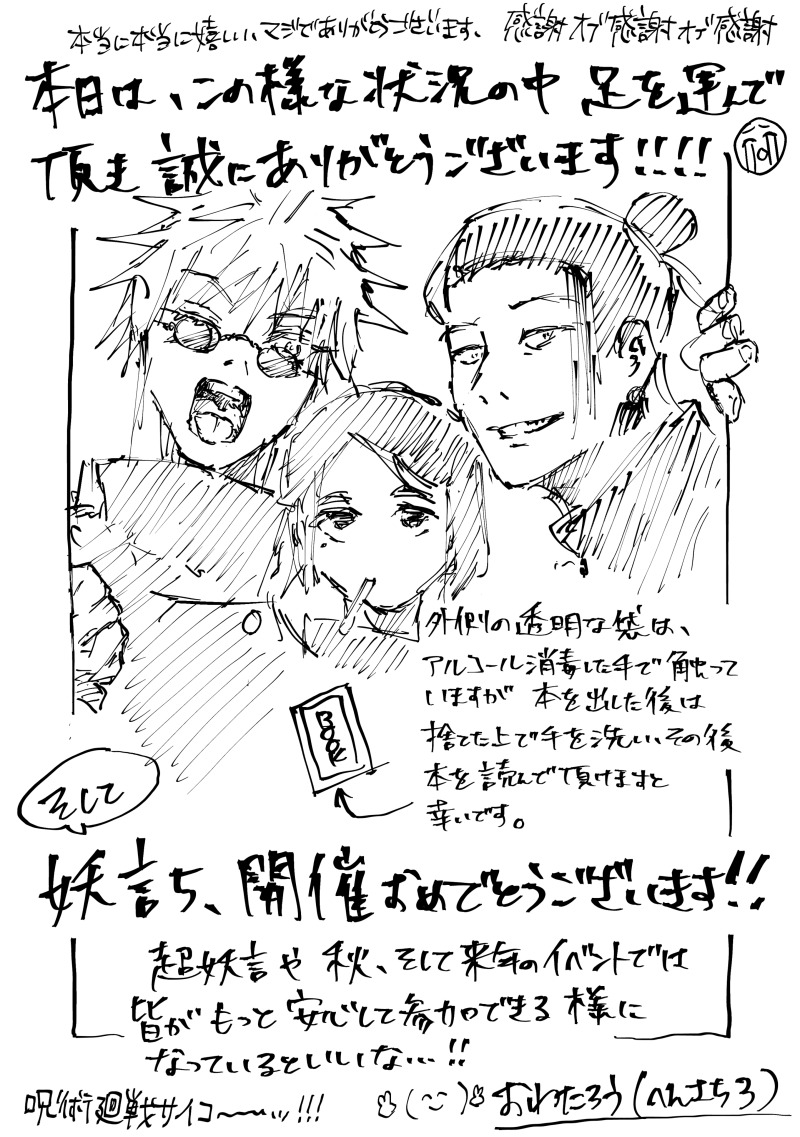 本当に本当に嬉しい、マジでありがとうございます、感謝オブ感謝オブ感謝
本日は、この様な状況の中 足を運んで
頂き 誠にありがとうございます!!!!
外側の透明な袋は、
アルコール消毒した手で触って
いますが 本を出した後は
捨てた上で手を洗い、その後
本を読んで頂けますと
幸いです。
BOOK
そして
妖言ち、開催おめでとうございます!!
超妖言や 秋、そして来年のイベントでは
皆が もっと 安心して参加できる 様に
なっているといいな…!!
呪術廻戦サイコ〜〜ッ!!!
おわたろう(へんさち3)